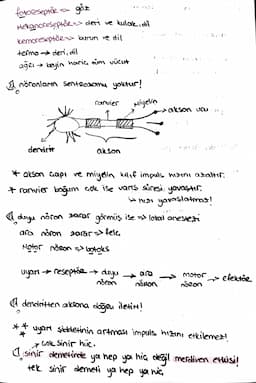 fotoreseptör => göz
Mekanoreseptör => deri ve kulak, dil
kemoreseptör => burun ve dil
termo → deri, dil
ağrı → beyin hariç tüm vücut
nöronların sentrozomu yoktur!
ranvier
miyelin
akson ucu
dendrit
akson
* akson çapı ve miyelin kılıf impuls hızını azaltır.
* ranvier boğum çok ise varış süresi yavaştır.
↳ hızı yavaşlatmaz!
duyu nöron zarar görmüş ise => lokal anestezi
ara nöron zarar => felç
Motor nöron => botoks
uyarı → reseptör → duyu nöron → ara nöron → motor nöron → efektör
dendritten aksona doğru iletim!
** uyarı şiddetinin artması impuls hızını etkilemez!
→ çok sinir hüc.
sinir demetinde ya hep ya hiç değil merdiven etkisi!
tek sinir demeti ya hep ya hiç